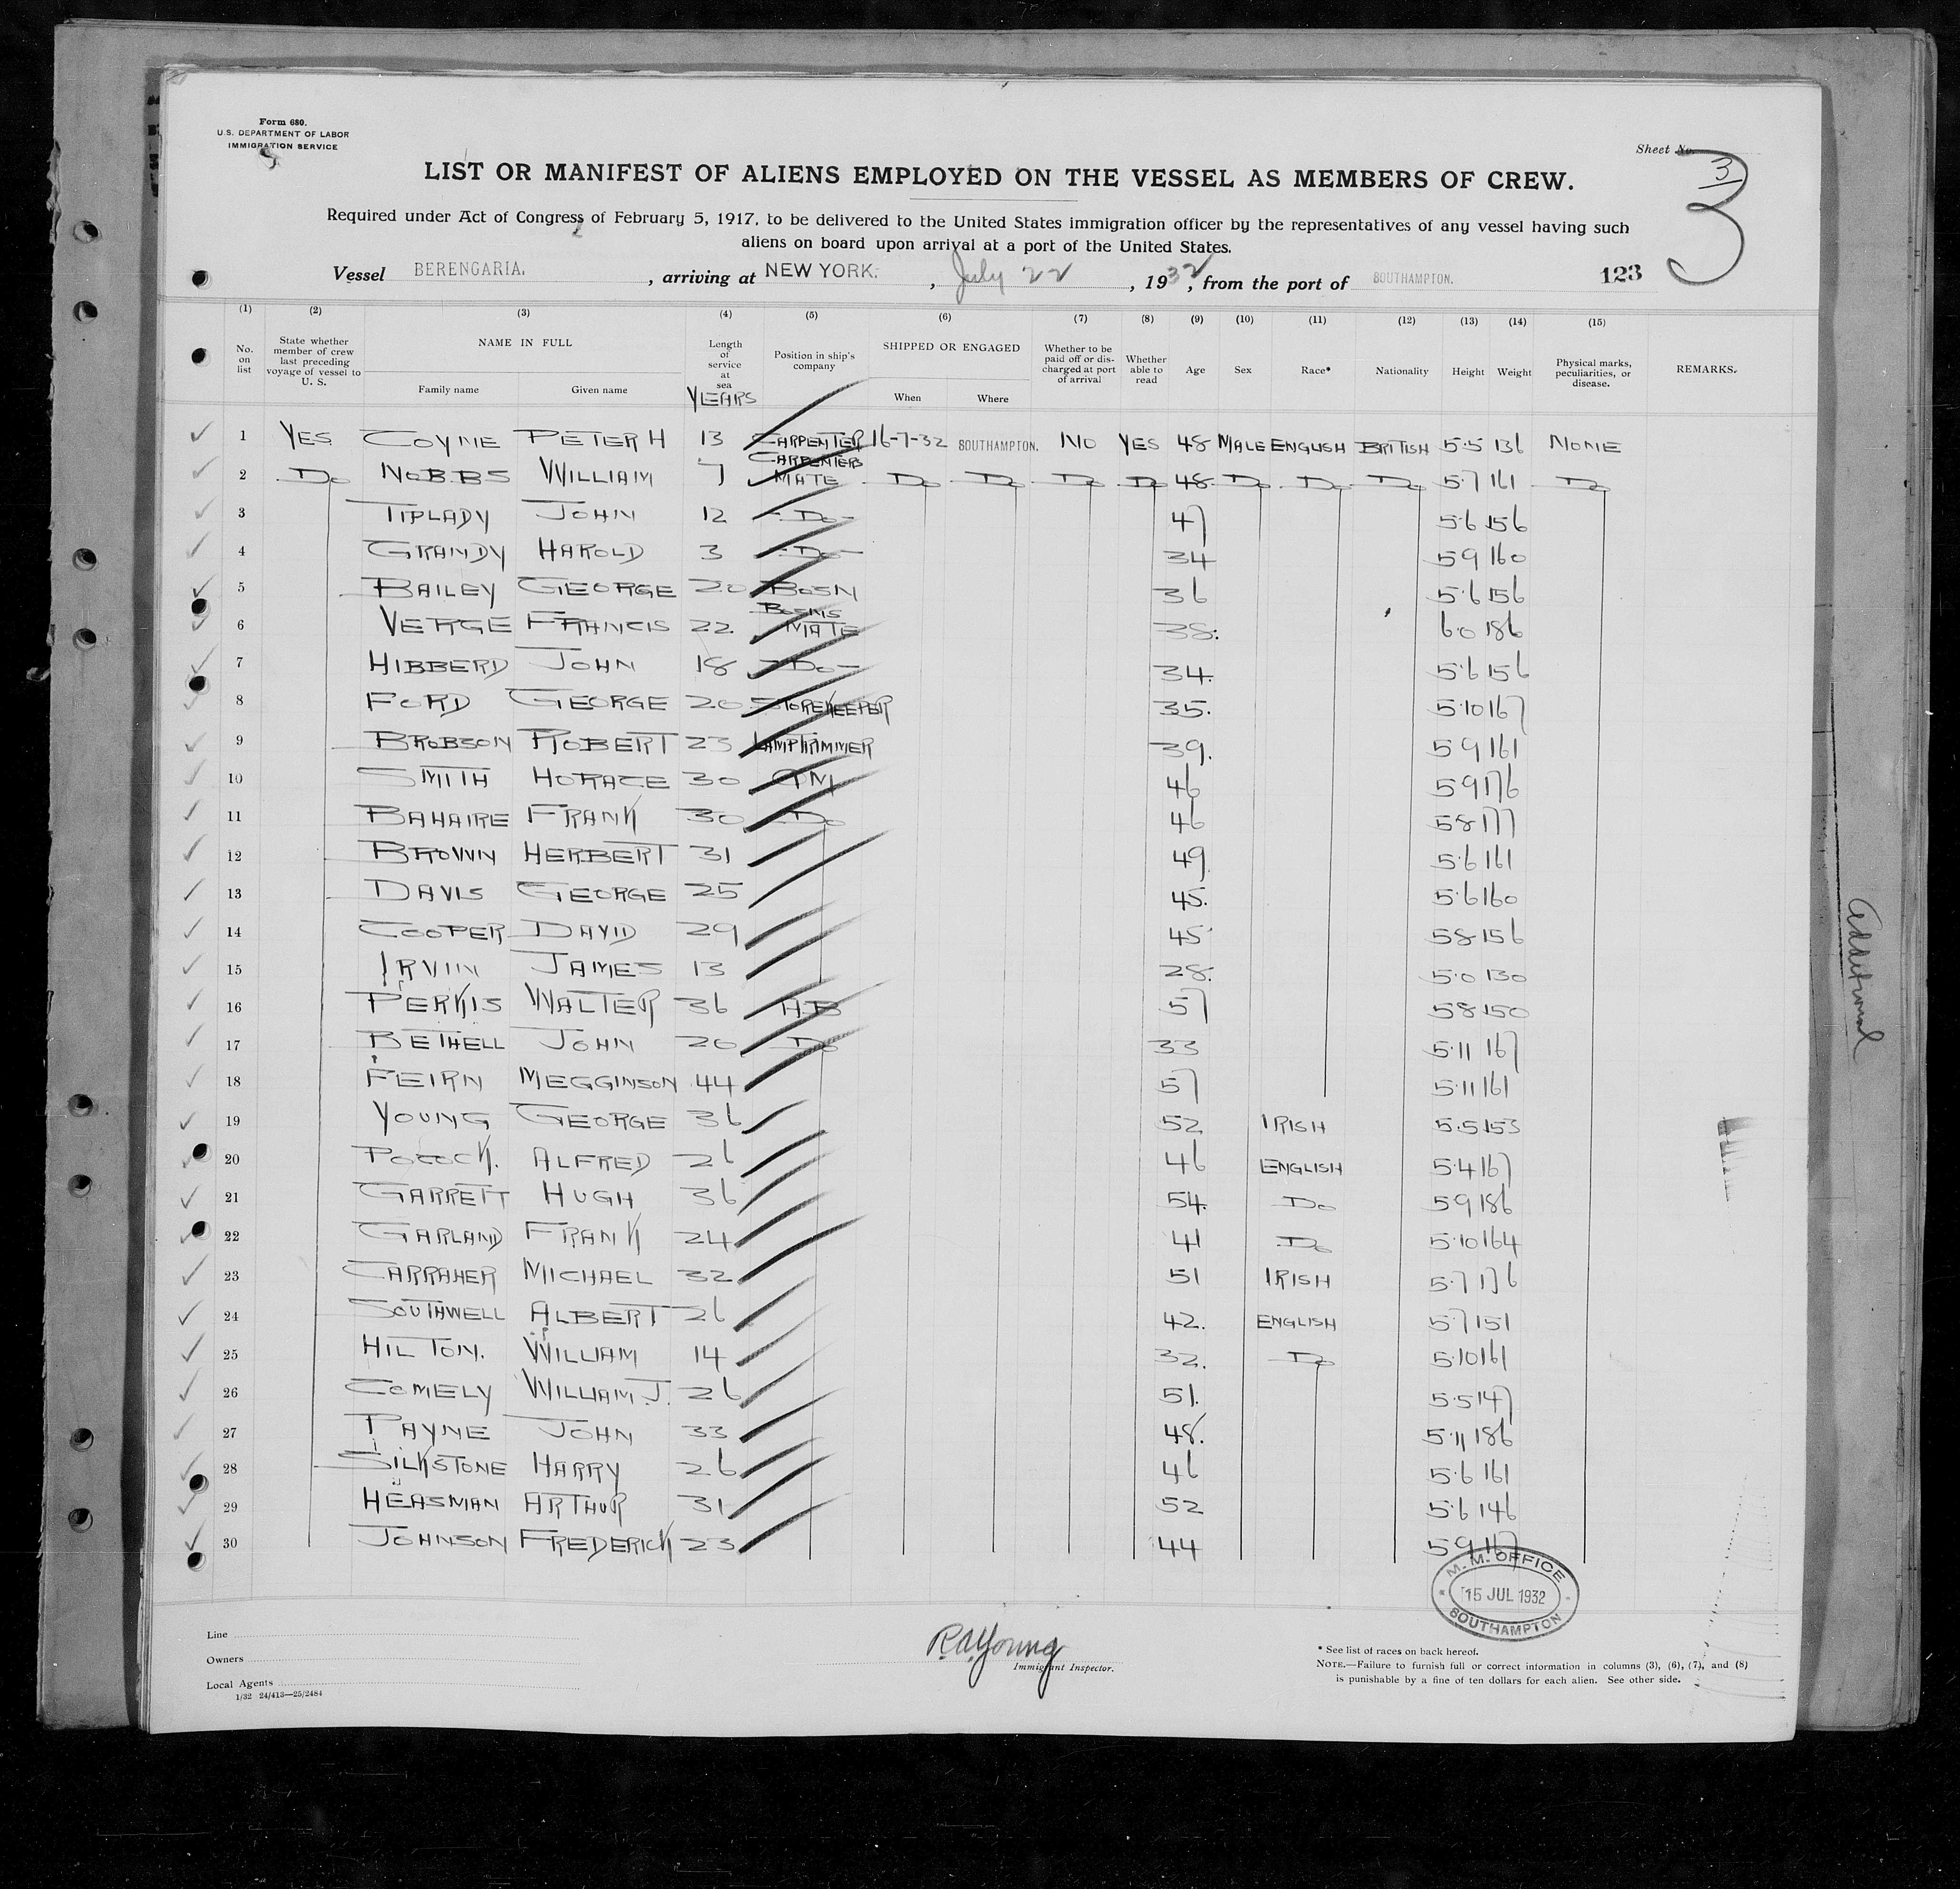 Form 680.
U.S. DEPARTMENT OF LABOR
IMMIGRATION SERVICE
Sheet No. 3
3
LIST OR MANIFEST OF ALIENS EMPLOYED ON THE VESSEL AS MEMBERS OF CREW.
Required under Act of Congress of February 5, 1917, to be delivered to the United States immigration officer by the representatives of any vessel having such
aliens on board upon arrival at a port of the United States.
Vessel BERENGARIA, arriving at NEW YORK, July 22, 1932, from the port of SOUTHAMPTON. 123
(1) (2) (3) (4) (5) (6) (7) (8) (9) (10) (11) (12) (13) (14) (15)
No. on list State whether member of crew last preceding voyage of vessel to U. S. NAME IN FULL Family name Given name Length of service at sea YEARS Position in ship's company SHIPPED OR ENGAGED When Where Whether to be paid off or discharged at port of arrival Whether able to read Age Sex Race* Nationality Height Weight Physical marks, peculiarities, or disease. REMARKS.
1 YES COYNE PETER H 13 CARPENTER 16-7-32 SOUTHAMPTON. NO YES 48 MALE ENGLISH BRITISH 5·5 136 NONE
2 Do NOBBS WILLIAM 7 CARPENTERS MATE Do Do Do Do 48 Do Do Do 5·7 161 Do
3 TIPLADY JOHN 12 Do 47 5·6 156
4 GRANDY HAROLD 3 Do 34 5 9 160
5 BAILEY GEORGE 20 BOSN 36 5·6 156
6 VERGE FRANCIS 22 BOSNS MATE 38 6·0 186
7 HIBBERD JOHN 18 Do 34 5·6 156
8 FORD GEORGE 20 STOREKEEPER 35 5·10 167
9 BROBSON ROBERT 23 LAMPTRIMMER 39 5 9 161
10 SMITH HORACE 30 QM 46 5 9 176
11 BAHAIRE FRANK 30 Do 46 5 8 177
12 BROWN HERBERT 31 49 5·6 161
13 DAVIS GEORGE 25 45 5·6 160
14 COOPER DAVID 29 45 5 8 156
15 IRVIN JAMES 13 28 5·0 130
16 PERKIS WALTER 36 H.B 57 5 8 150
17 BETHELL JOHN 20 Do 33 5·11 167
18 FEIRN MEGGINSON 44 57 5·11 161
19 YOUNG GEORGE 36 52 IRISH 5·5 153
20 POCOCK. ALFRED 26 46 ENGLISH 5·4 167
21 GARRETT HUGH 36 54 Do 5 9 186
22 GARLAND FRANK 24 41 Do 5·10 164
23 CARRAHER MICHAEL 32 51 IRISH 5·7 176
24 SOUTHWELL ALBERT 26 42 ENGLISH 5·7 151
25 HILTON. WILLIAM 14 32 Do 5·10 161
26 COMELY WILLIAM J. 26 51 5·5 147
27 PAYNE JOHN 33 48 5·11 186
28 SILKSTONE HARRY 26 46 5·6 161
29 HEASMAN ARTHUR 31 52 5·6 146
30 JOHNSON FREDERICK 23 44 5 9 167
M. M. OFFICE
15 JUL 1932
SOUTHAMPTON
Line
Owners
Local Agents
1/32 24/413—25/2484
R.A. Young
Immigrant Inspector.
* See list of races on back hereof.
NOTE.—Failure to furnish full or correct information in columns (3), (6), (7), and (8)
is punishable by a fine of ten dollars for each alien. See other side.
Additional